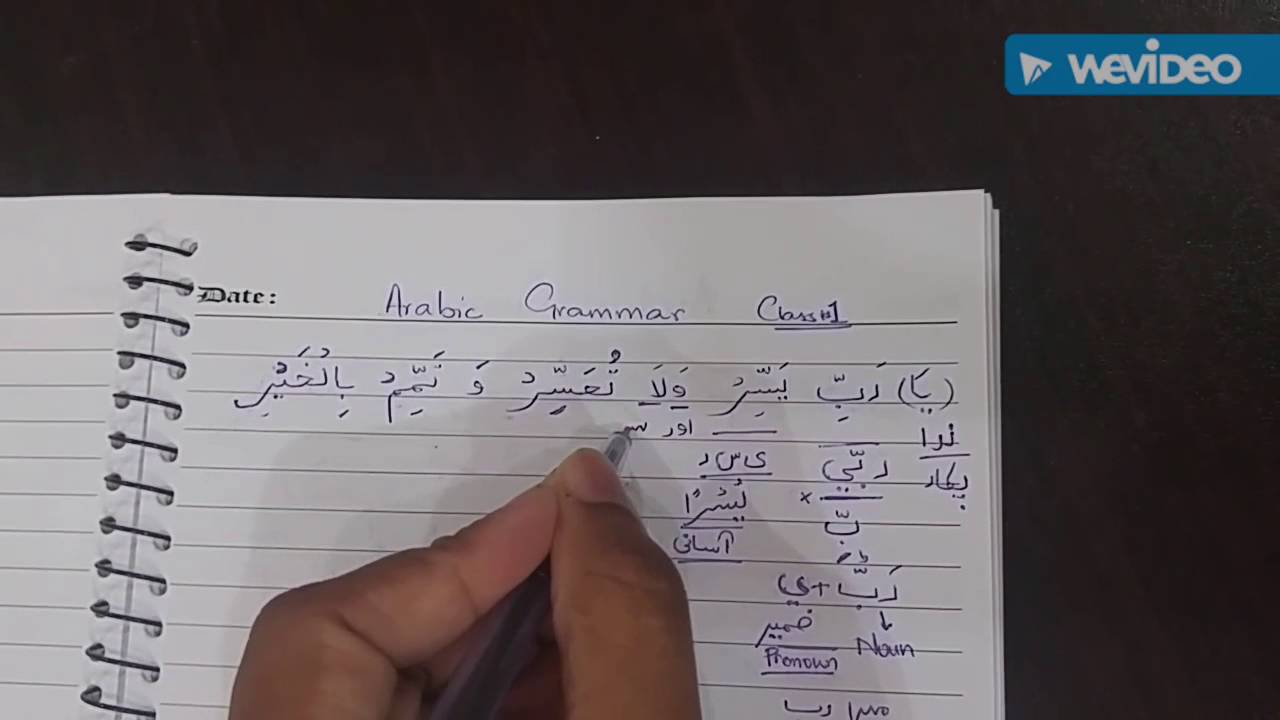 WEVIDEO
Date: Arabic Grammar Class#1
(يَا) رَبِّ يَسِّرْ وَلَا تُعَسِّرْ وَ تَمِّمْ بِالْخَيْرِ
ندا اور
پکار ربِّي ی س ر
× بِّ يُسْرًا
آسانی
رَبِّ + ي
ضمیر Noun
Pronoun
میرا رب